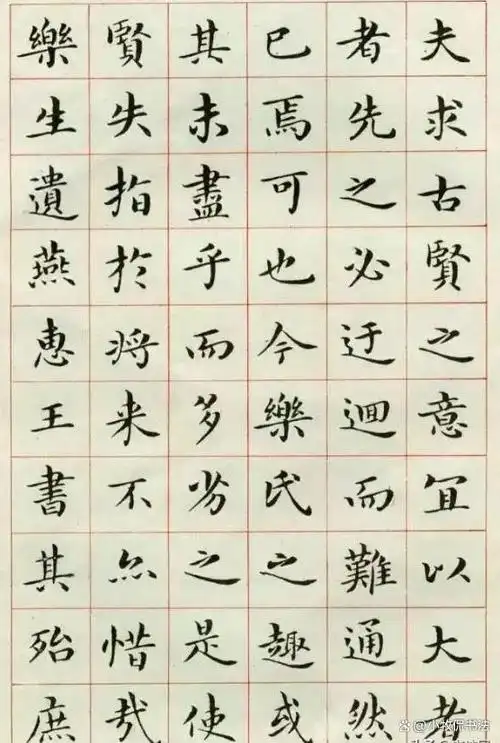 夫求古賢之意冝以大者
者先之必迂迴而難通然
已焉可也今樂氏之趣或
其未盡乎而多劣之是使
賢失指於将来不亦惜哉
樂生遺燕惠王書其殆庶
小牧侃书法